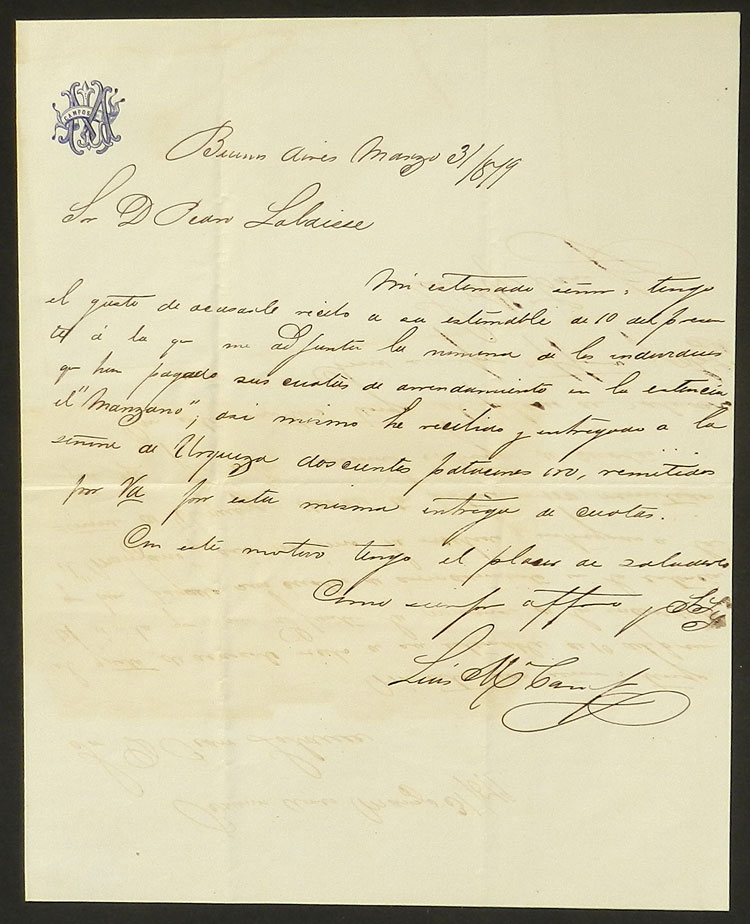 CAMPOS
Buenos Aires Marzo 31/879
Sor D Pedro
Mi estimado señor; tengo
el gusto de acusarle recibo a su estimable de 10 del presen
te á la que me adjunta la nomina de los individuos
q han pagado sus cuotas de arrendamiento en la estancia
el "Manzano"; asi mismo he recibido y entregado a la
señora de Urquiza doscientos patacones, remitidos
por Vd por esta misma entrega de cuotas.
Con este motivo tengo el placer de saludarlo
Como siempre affmo y SS
Luis Ma Campos